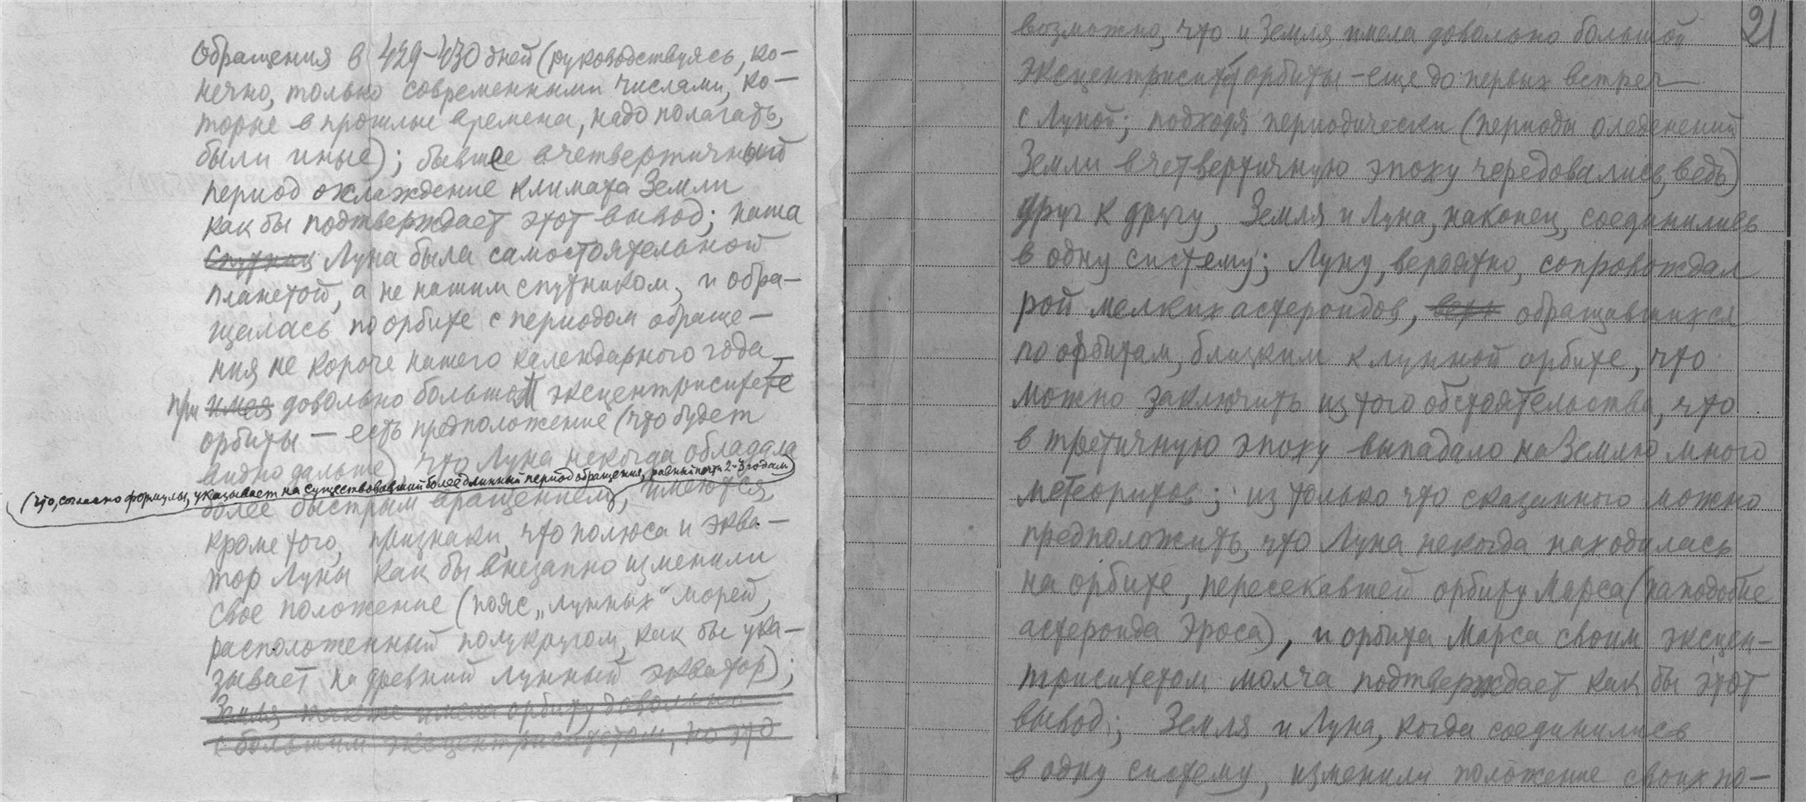 обращения в 429-430 дней (руководствуясь, ко-
нечно, только современными числами, ко-
торые в прошлые времена, надо полагать,
были иные); бывшее в четвертичный
период охлаждение климата Земли
как бы подтверждает этот вывод; наша
спутник Луна была самостоятельной
планетой, а не нашим спутником, и обра-
щалась по орбите с периодом обраще-
ния не короче нашего календарного года
при имея довольно большом эксцентриситете
орбиты — есть предположение (что будет
видно дальше), что Луна некогда обладала
(что, согласно формулы, указывает на существовавший более длинный период обращения, равный почти 2-3 годам)
более быстрым вращением, имеются,
кроме того, признаки, что полюса и эква-
тор Луны как бы внезапно изменили
свое положение (пояс „лунных“ морей,
расположенный полукругом, как бы ука-
зывает на древний лунный экватор);
Земля также имела орбиту довольно
с большим эксцентриситетом, но это
21
возможно, что и Земля имела довольно большой
эксцентриситет орбиты - еще до первых встреч
с Луной; подходя периодически (периоды оледенений
Земли в четвертичную эпоху чередовались, ведь)
друг к другу, Земля и Луна, наконец, соединились
в одну систему; Луну, вероятно, сопровождал
рой мелких астероидов, обращавшихся
по орбитам, близким к лунной орбите, что
можно заключить из того обстоятельства, что
в третичную эпоху выпадало на Землю много
метеоритов; из только что сказанного можно
предположить, что Луна некогда находилась
на орбите, пересекавшей орбиту Марса (наподобие
астероида Эроса), и орбита Марса своим эксцен-
триситетом молча подтверждает как бы этот
вывод; Земля и Луна, когда соединились
в одну систему, изменили положение своих по-